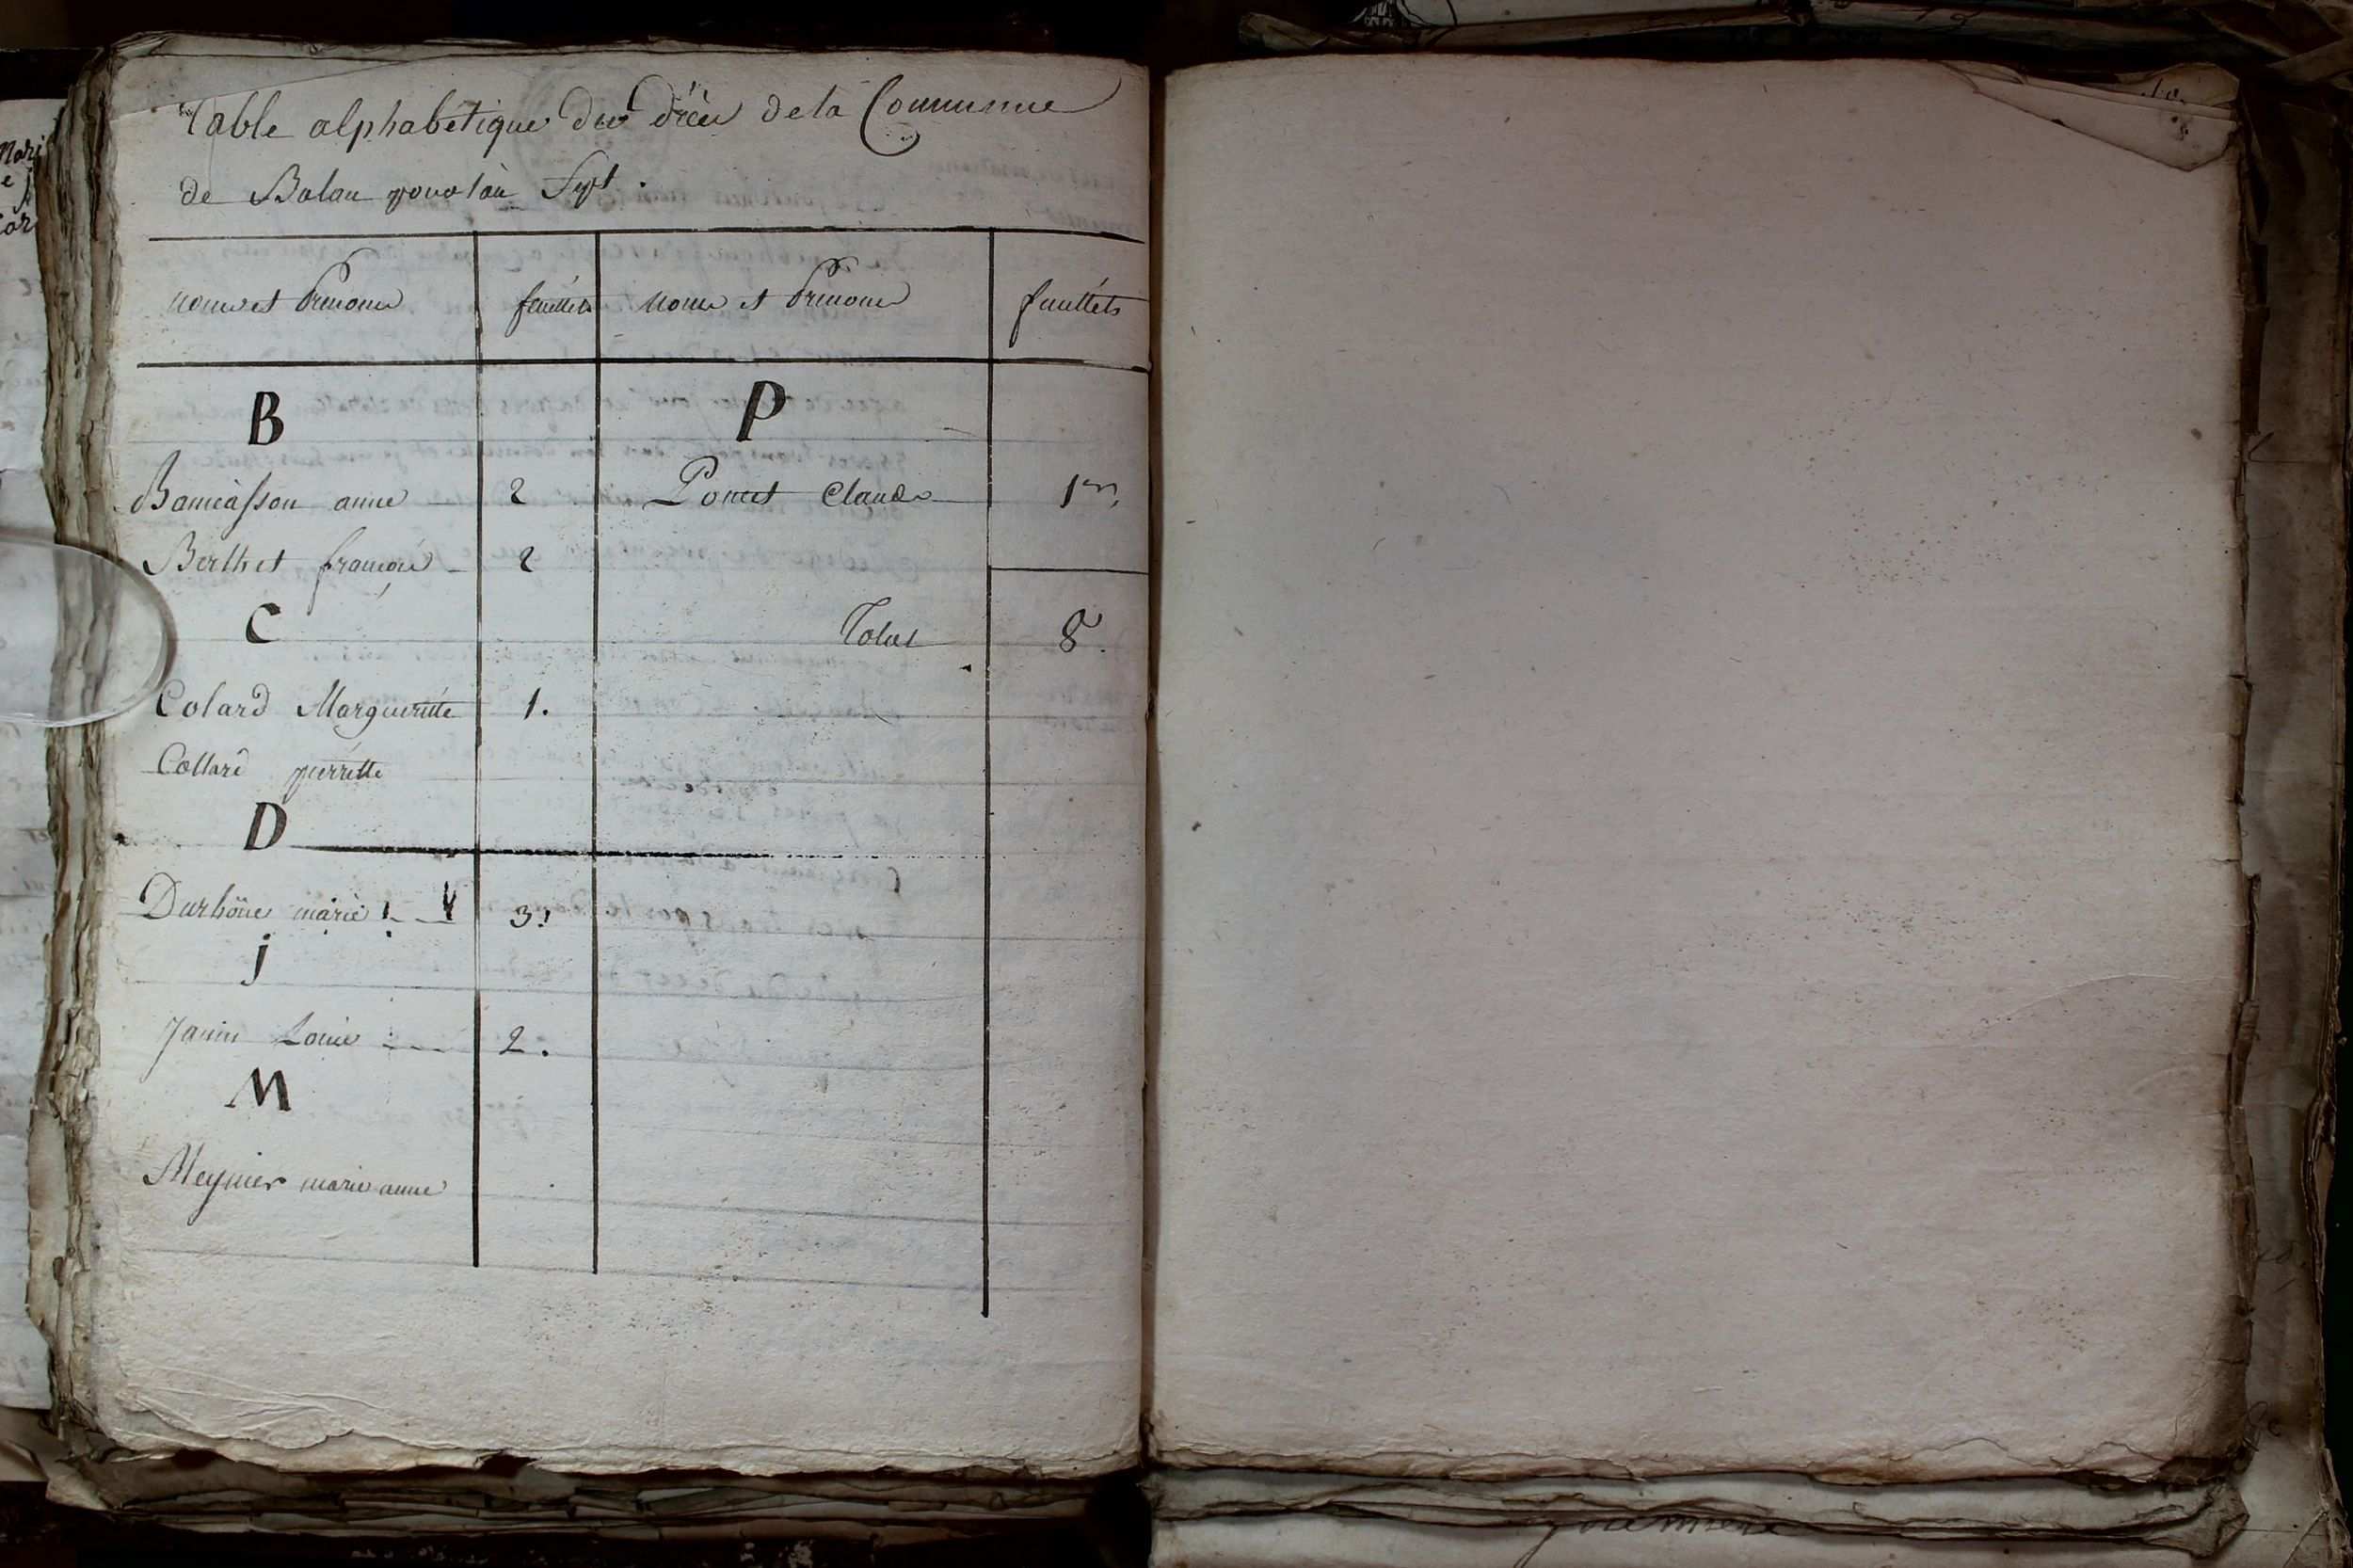 Table alphabétique des décès de la Commune
de Balan pour l'an Sept.
noms et Prenoms feuillets noms et Prenoms feuillets
B P
anne 2 Poncet Claude 1er,
Berthet françois 2
C Total 8.
Colard Margueritte 1.
Collard pierrette
D
marie 3.
j
Janin Louis 2.
M
Meynier marie anne